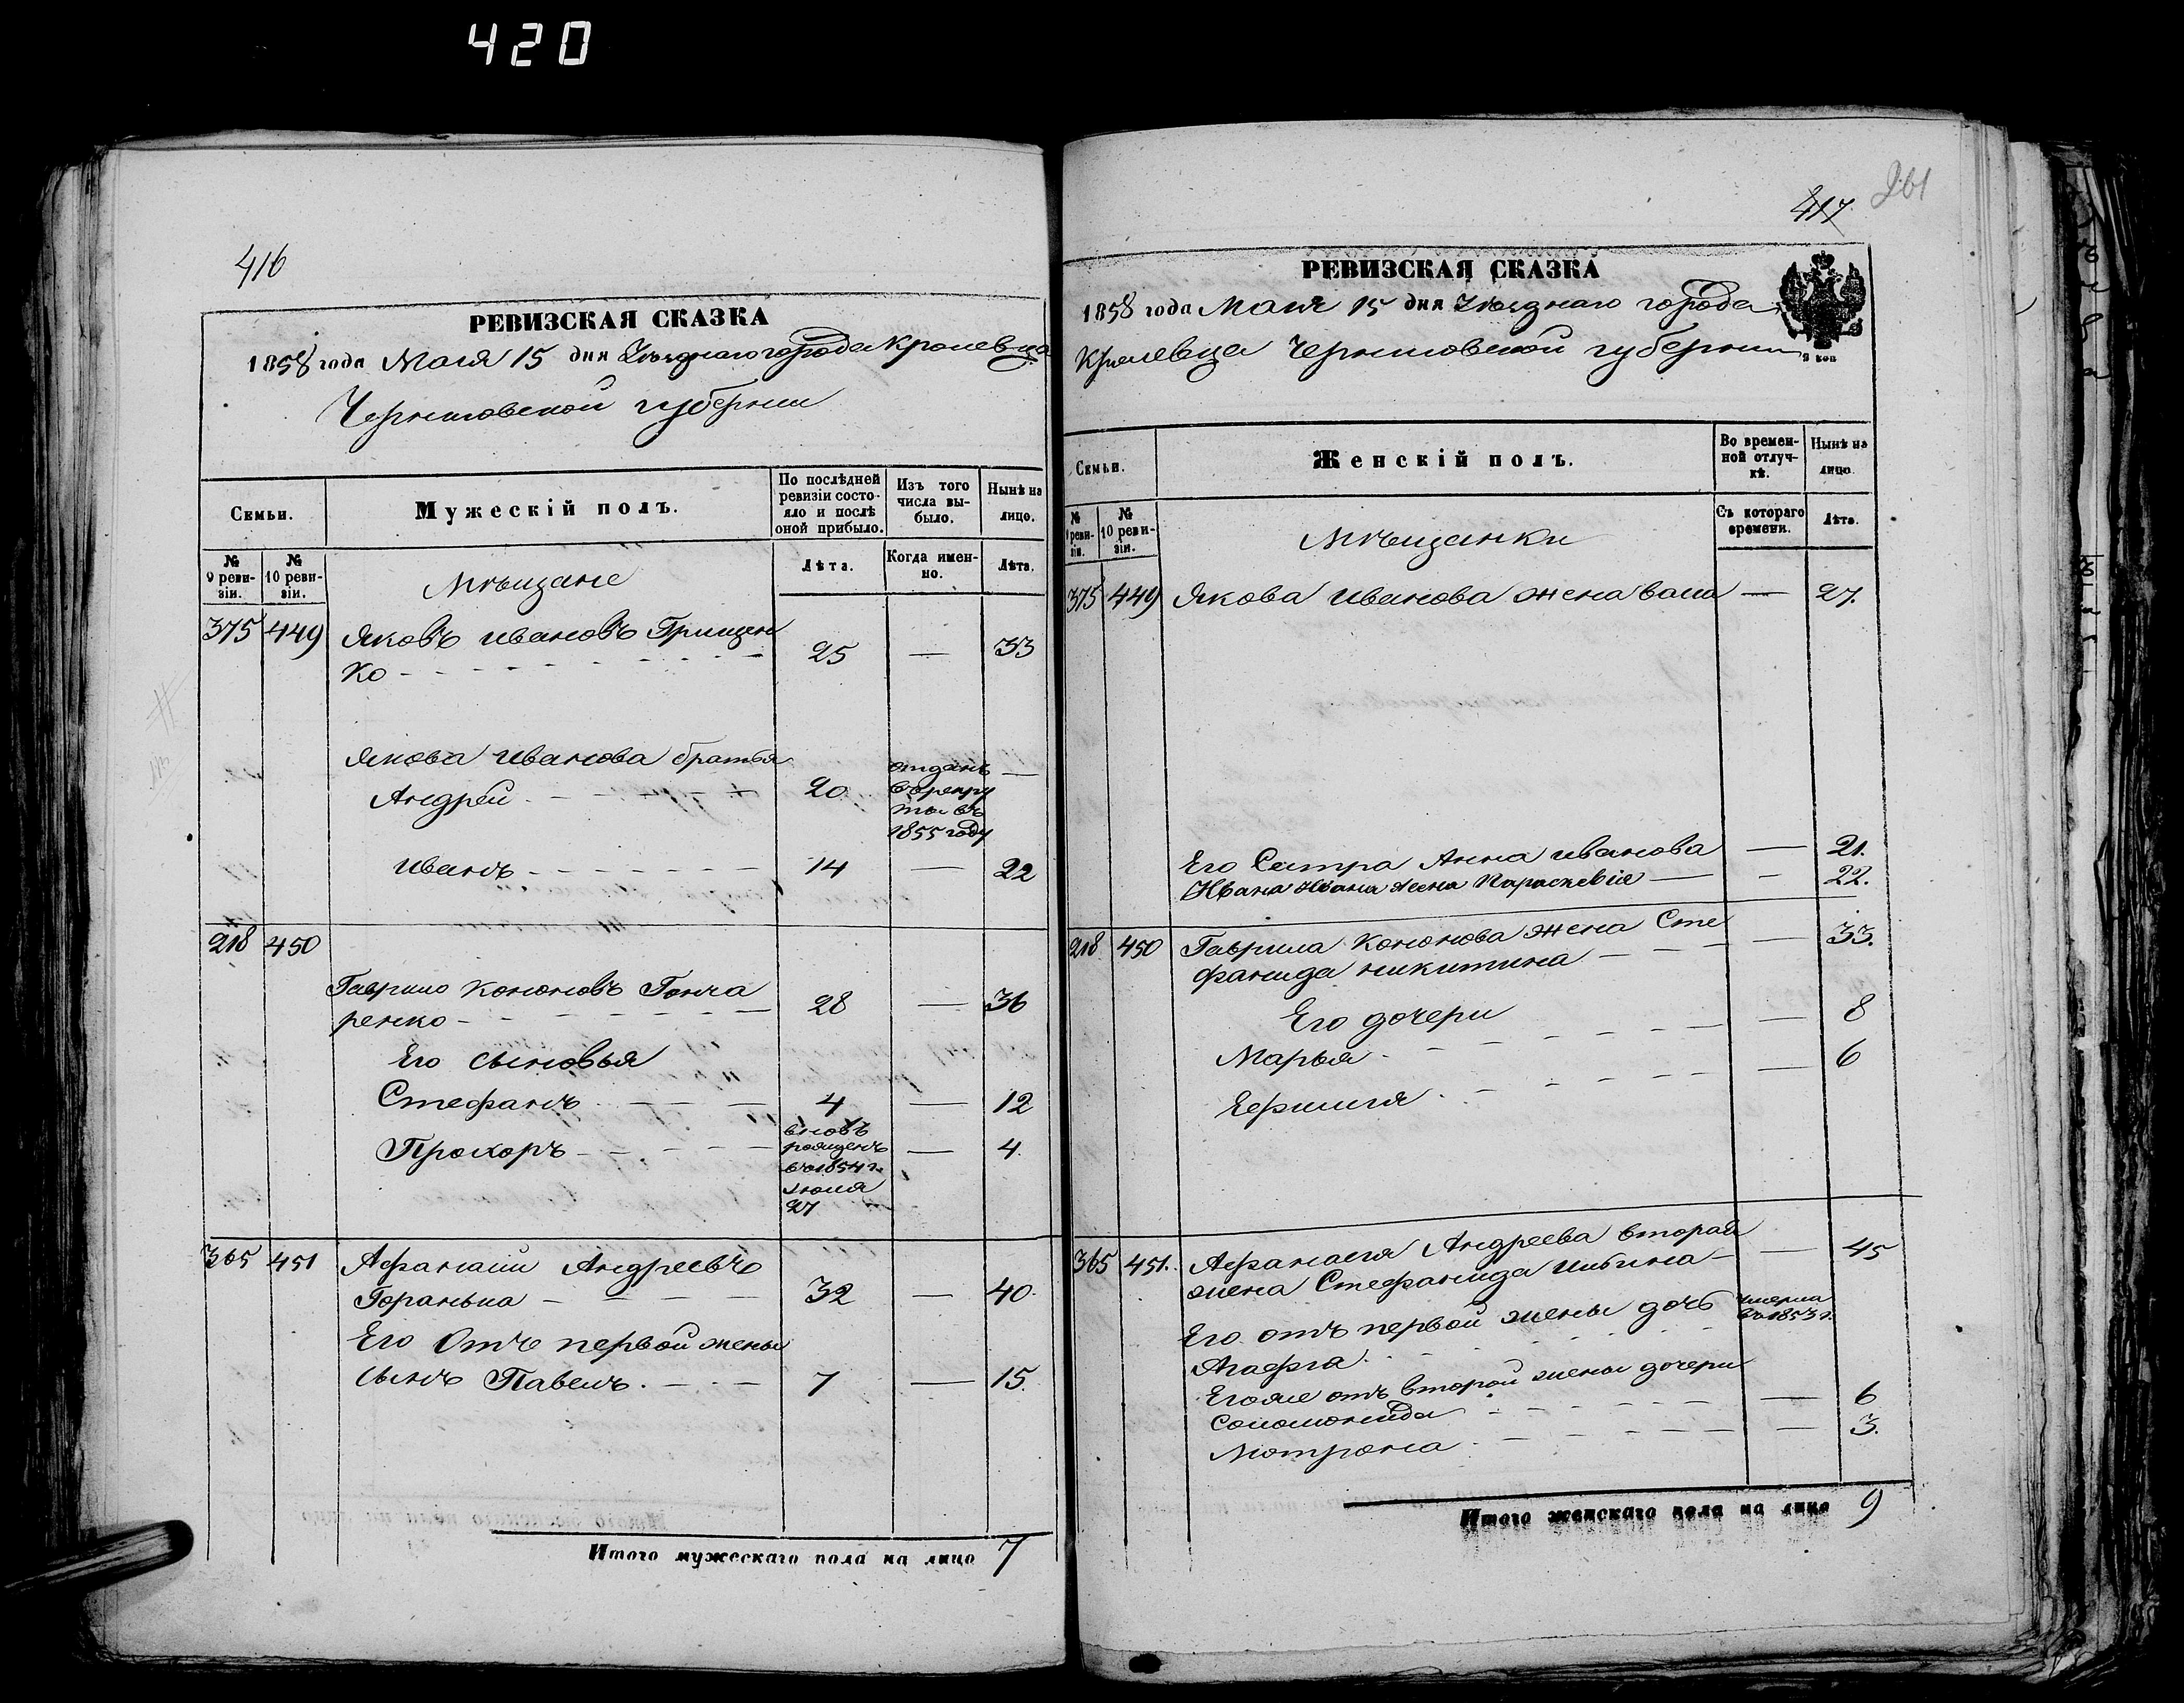 420
416
РЕВИЗСКАЯ СКАЗКА
1858 года Маія 15 дня Уѣзднаго города Кролевца
Черниговской губернии
Семьи.
Мужескій полъ.
По послѣдней ревизіи состояло и послѣ оной прибыло.
Изъ того числа выбыло.
Нынѣ на лицо.
№ 9 ревизіи.
№ 10 ревизіи.
Мѣщане
Лѣта.
Когда именно.
Лѣта.
375 449 Яковъ Ивановъ Грищен
ко 25 — 33
Якова Иванова братья
Андрей 20 отданъ
въ рекру
ты въ
1855 году —
Иванъ 14 — 22
218 450
Гаврило Кононовъ Гонча
ренко 28 — 36
Его сыновья
Стефанъ 4 — 12
Прохоръ вновь
рожденъ
въ 1854 г.
Июля
27 — 4
365 451 Афанасий Андреевъ
Горанька 32 — 40
Его отъ первой жены
сынъ Павелъ 7 — 15
Итого мужескаго пола на лицо 7
417
261
РЕВИЗСКАЯ СКАЗКА
1858 года Маія 15 дня Уѣзднаго города
Кролевца Черниговской губернии
Семьи.
Женскій полъ.
Во временной отлучкѣ.
Нынѣ на лицо.
№ 9 ревизіи.
№ 10 ревизіи.
Мѣщанки
Съ котораго времени.
Лѣта.
375 449 Якова Иванова жена — 27.
Его Сестра Анна Иванова — 21.
Ивана Иванова жена Параскевія — 22.
218 450 Гаврила Кононова жена Сте
фанида Никитина — 33.
Его дочери
Марья — 8
Ефимия — 6
365 451. Афанасия Андреева вторая
жена Стефанида Ильина — 45
Его отъ первой жены дочь умерла
въ 1853 г.
Агафia
Его же отъ второй жены дочери
Соломонида — 6
Мотрона — 3.
Итого женскаго пола на лицо 9